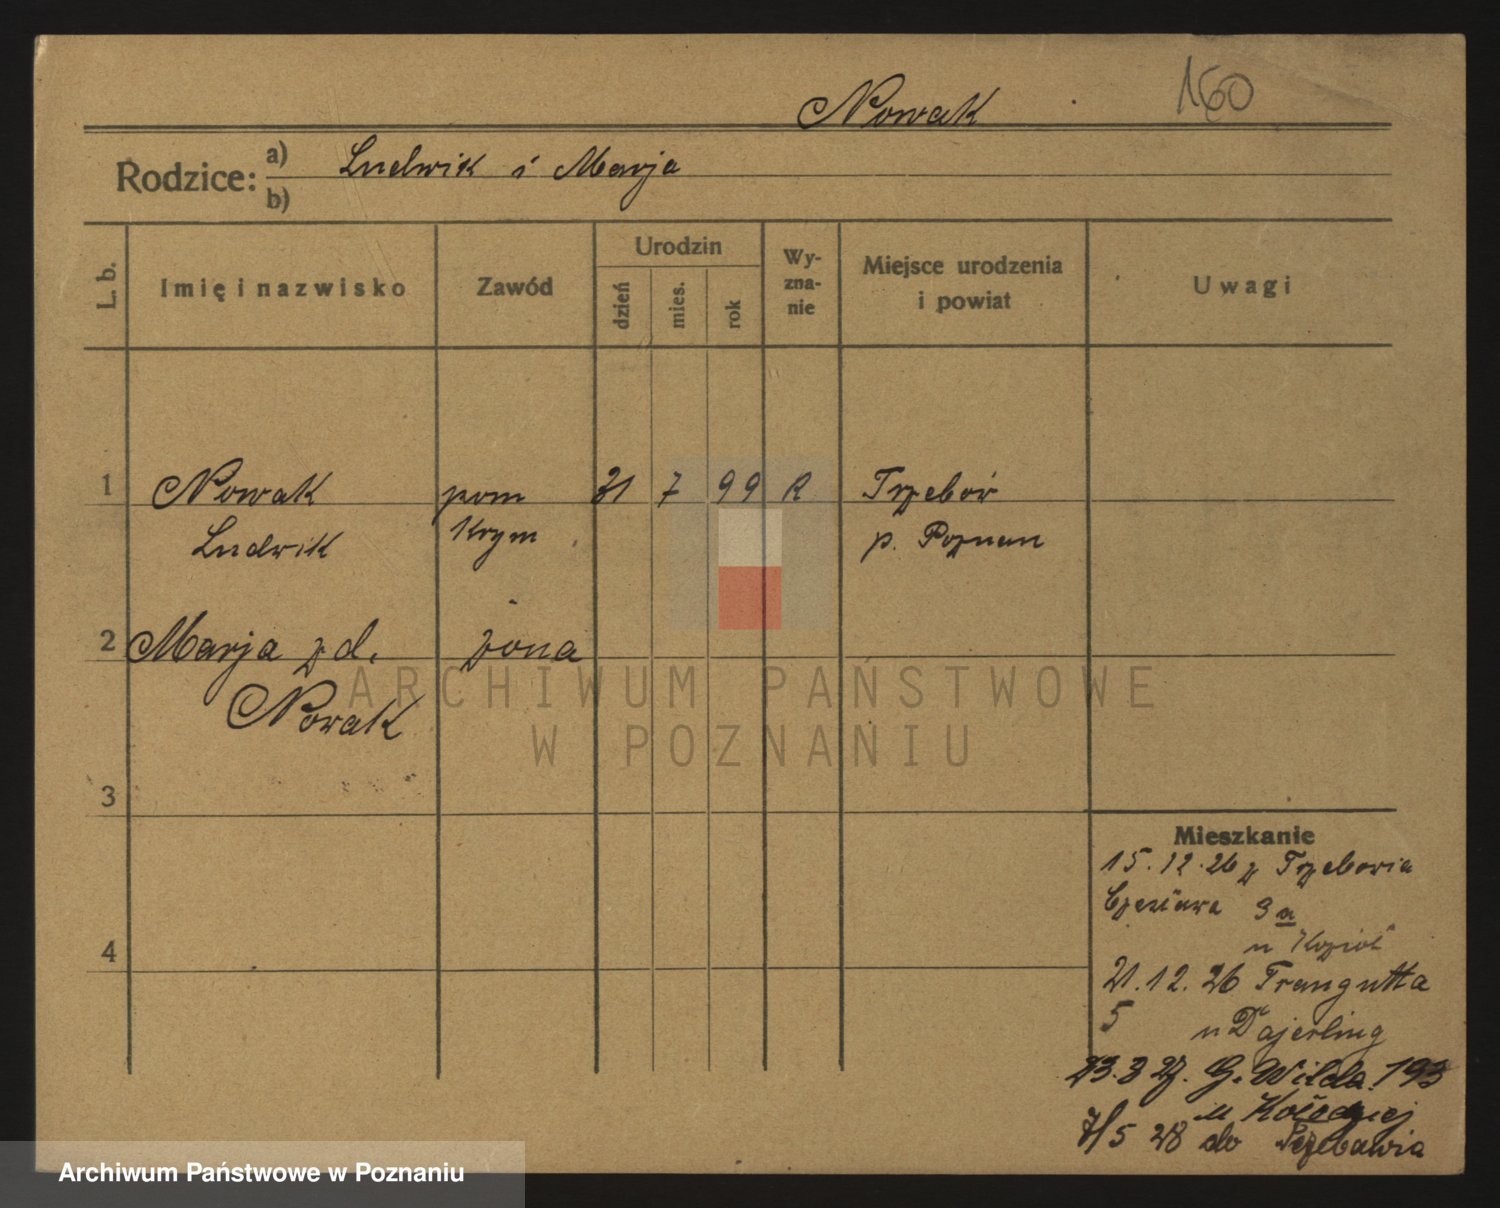 Nowak 160
Rodzice: a) Ludwik i Marja
b)
L. b. Imię i nazwisko Zawód Urodzin dzień mies. rok Wy-zna-nie Miejsce urodzenia i powiat Uwagi
1 Nowak pom 31 7 99 R Trzebór
Ludwik Krym p. Poznan
2 Marja z d. żona
Nowak
ARCHIWUM PAŃSTWOWE
W POZNANIU
3
Mieszkanie
15.12.26 z Trzeboria
3 a
4 u Kozioł
21.12.26 Traugutta
5 u Dajerling
23.3 27. G. Wilda 193
u Kołodziej
7/5 28 do
Archiwum Państwowe w Poznaniu